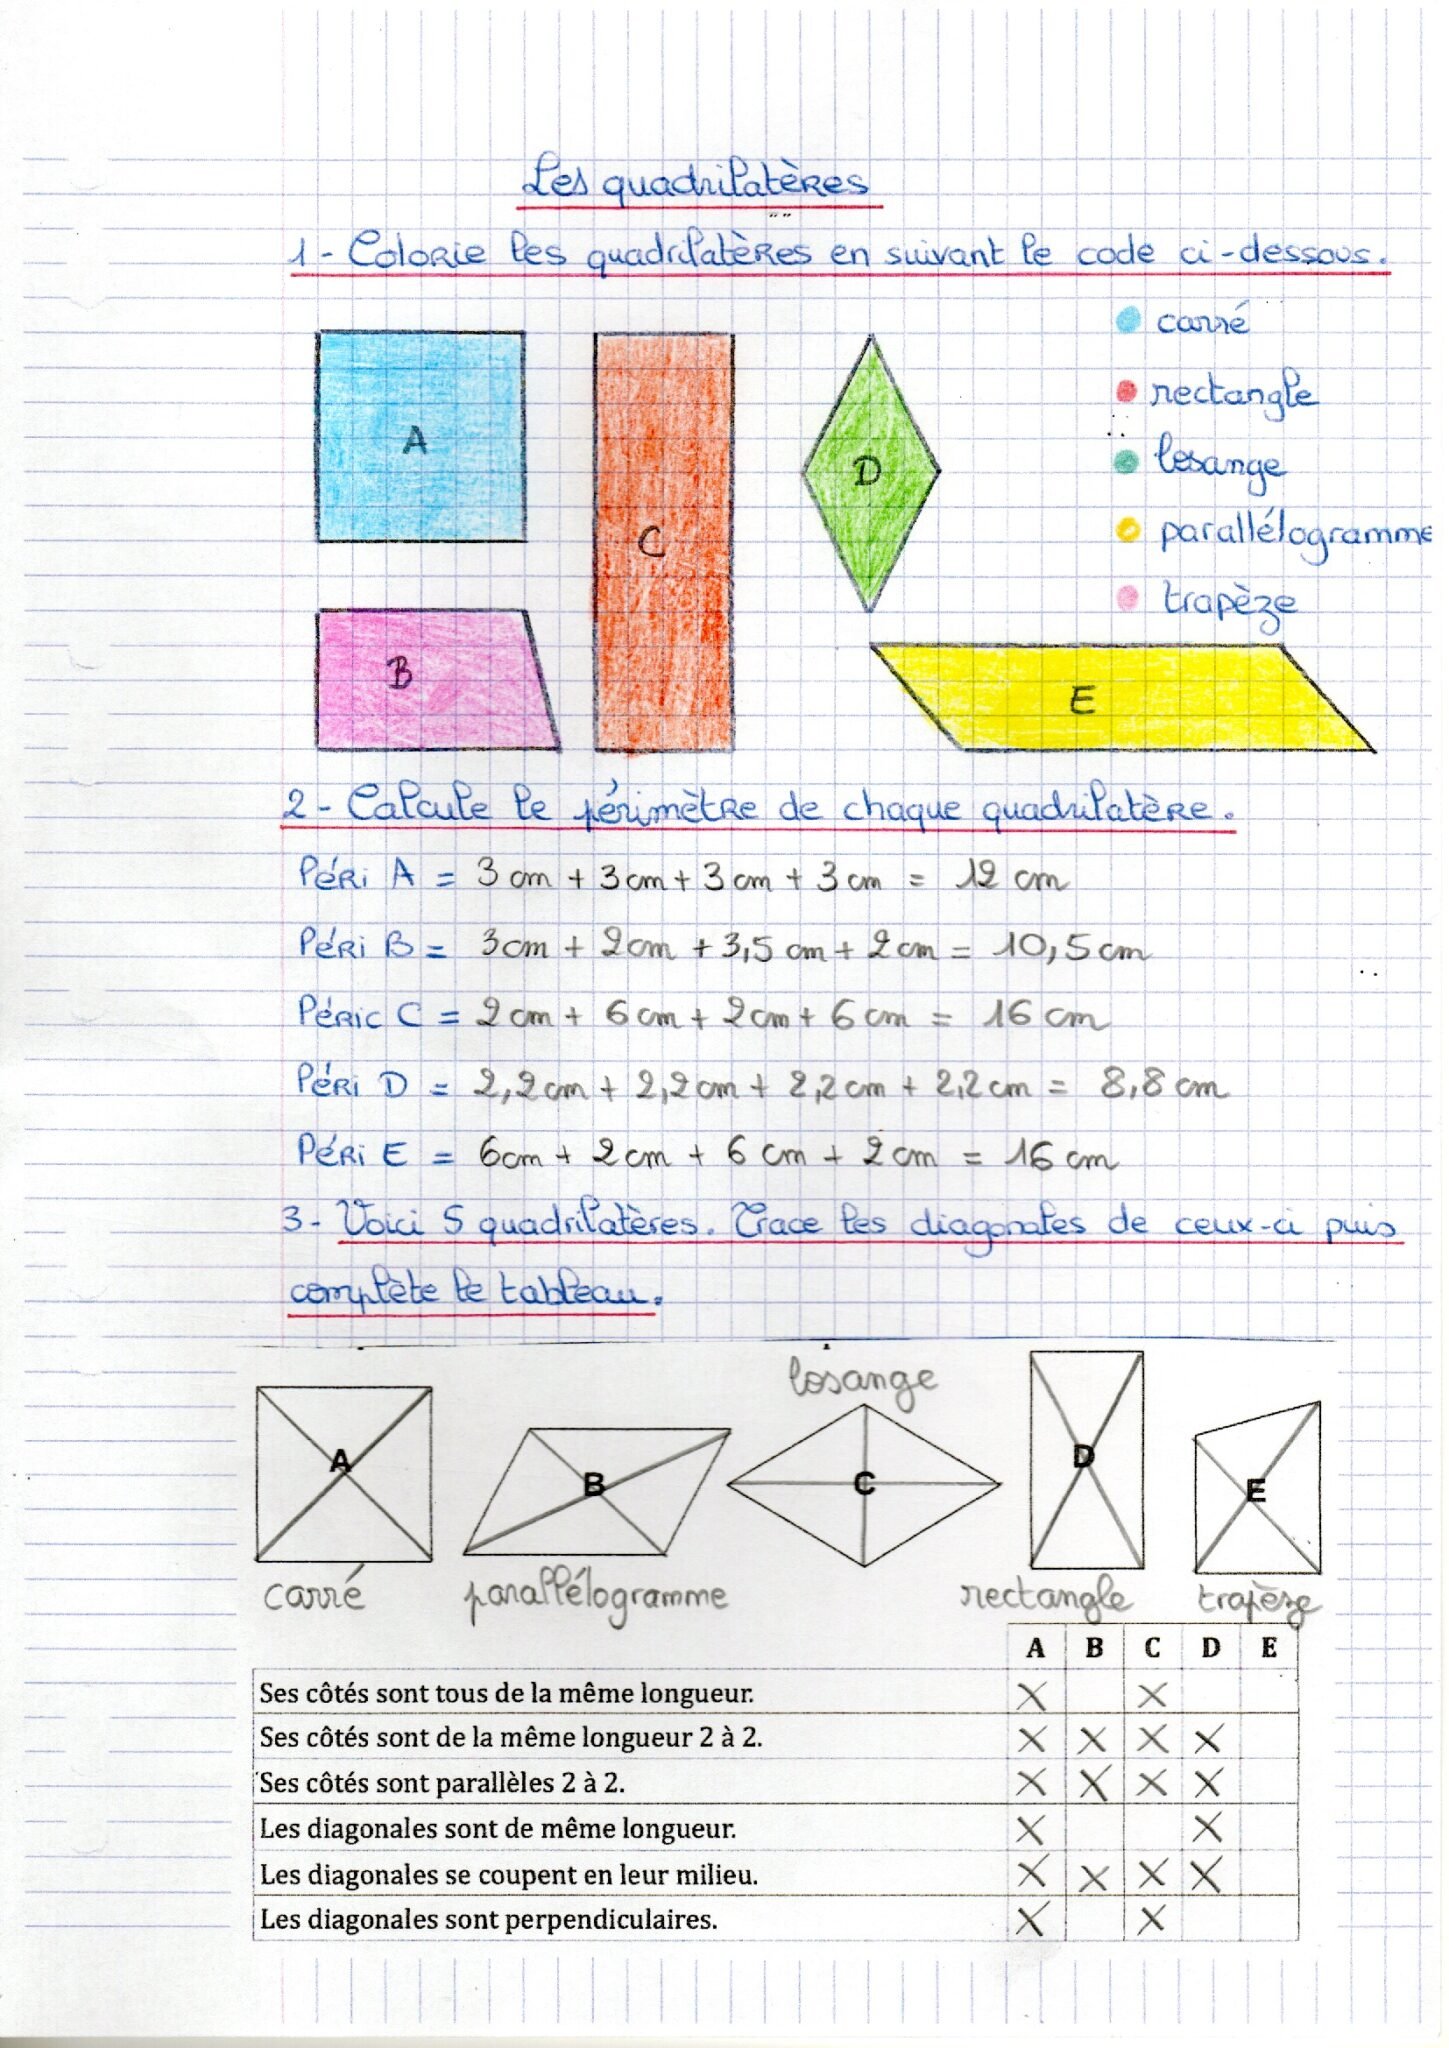 Les quadrilatères
1 - Colorie les quadrilatères en suivant le code ci-dessous.
carré
rectangle
losange
parallélogramme
trapèze
A
B
C
D
E
2 - Calcule le périmètre de chaque quadrilatère.
Péri A = 3 cm + 3 cm + 3 cm + 3 cm = 12 cm
Péri B = 3 cm + 2 cm + 3,5 cm + 2 cm = 10,5 cm
Péric C = 2 cm + 6 cm + 2 cm + 6 cm = 16 cm
Péri D = 2,2 cm + 2,2 cm + 2,2 cm + 2,2 cm = 8,8 cm
Péri E = 6 cm + 2 cm + 6 cm + 2 cm = 16 cm
3 - Voici 5 quadrilatères. Trace les diagonales de ceux-ci puis
complète le tableau.
losange
A
B
C
D
E
carré
parallélogramme
rectangle
trapèze
A B C D E
Ses côtés sont tous de la même longueur. X X
Ses côtés sont de la même longueur 2 à 2. X X X X
Ses côtés sont parallèles 2 à 2. X X X X
Les diagonales sont de même longueur. X X
Les diagonales se coupent en leur milieu. X X X X
Les diagonales sont perpendiculaires. X X